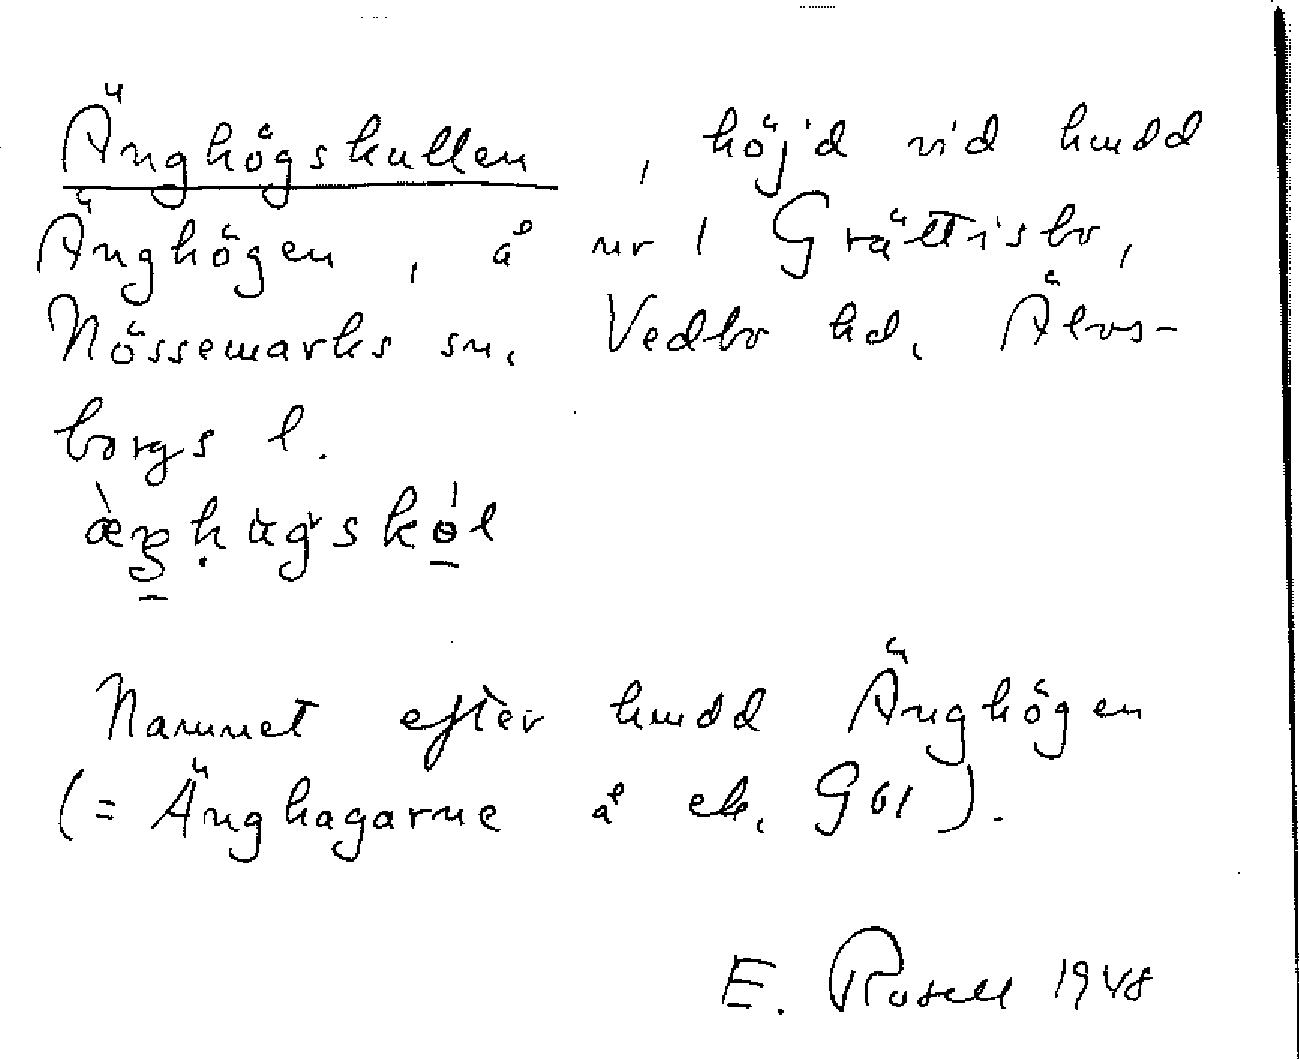 Änghögskullen, höjd vid hmdd
Änghögen, å nr 1 Grättisbo,
Nössemarks sn. Vedbo hd. Älvs-
borgs l.
Namnet efter hmdd Änghögen
(= Änghagarne å ek. G01).
E. Rosell 1948